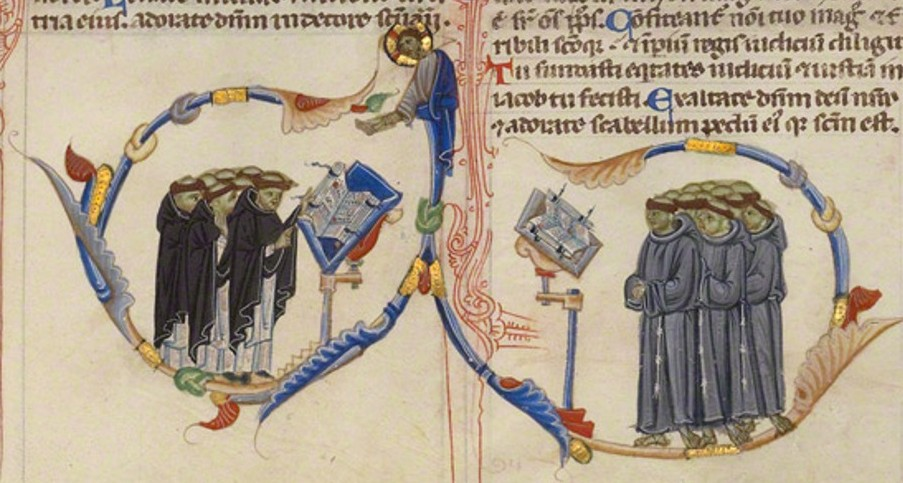 tria eius. adorate dñm in decore scũarii.
ẽ sr̃ os ip̃s. Cõfiteant̃ nõi tuo mag̃ ⁊ t̃
ribili scõq; ẽ. ĩpiũ regis iudiciũ diligit
Tu fundasti eq̃tates iudiciũ ⁊ iustiã in
iacob tu fecisti. Exaltate dñm deũ nr̃m
⁊ adorate scabellum pedũ ei᷒ qr scm̃ est.